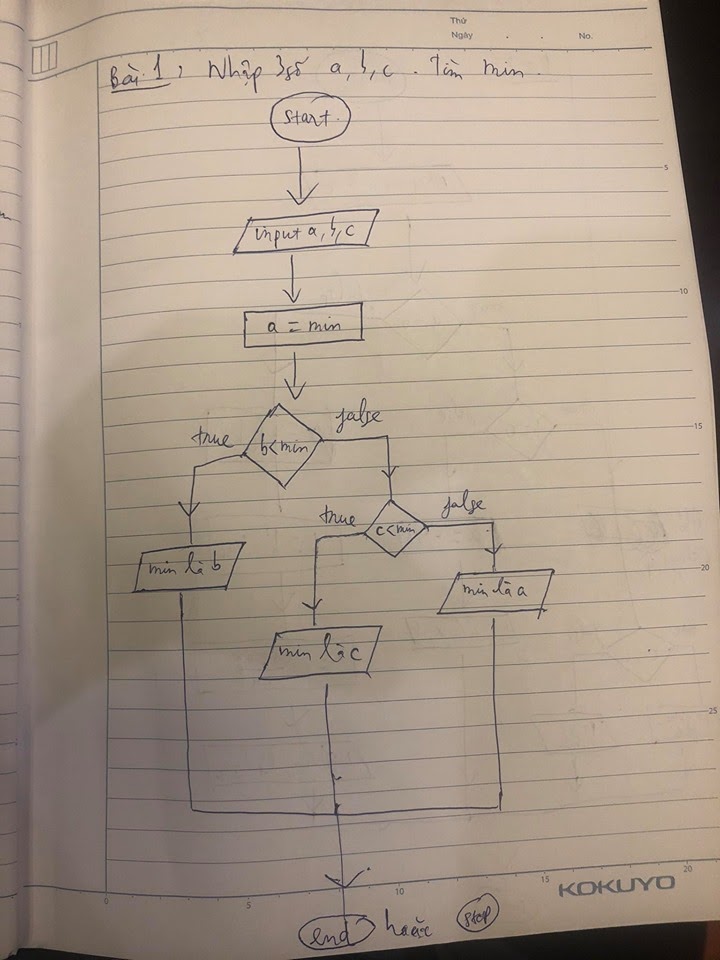 Thứ
Ngày . . No.
Bài 1: Nhập 3 số a, b, c. Tìm min.
Start
input a, b, c
a = min
b < min
true
false
c < min
true
false
min là b
min là a
min là c
end hoặc stop
5
10
15
20
25
0 5 10 15 20
KOKUYO